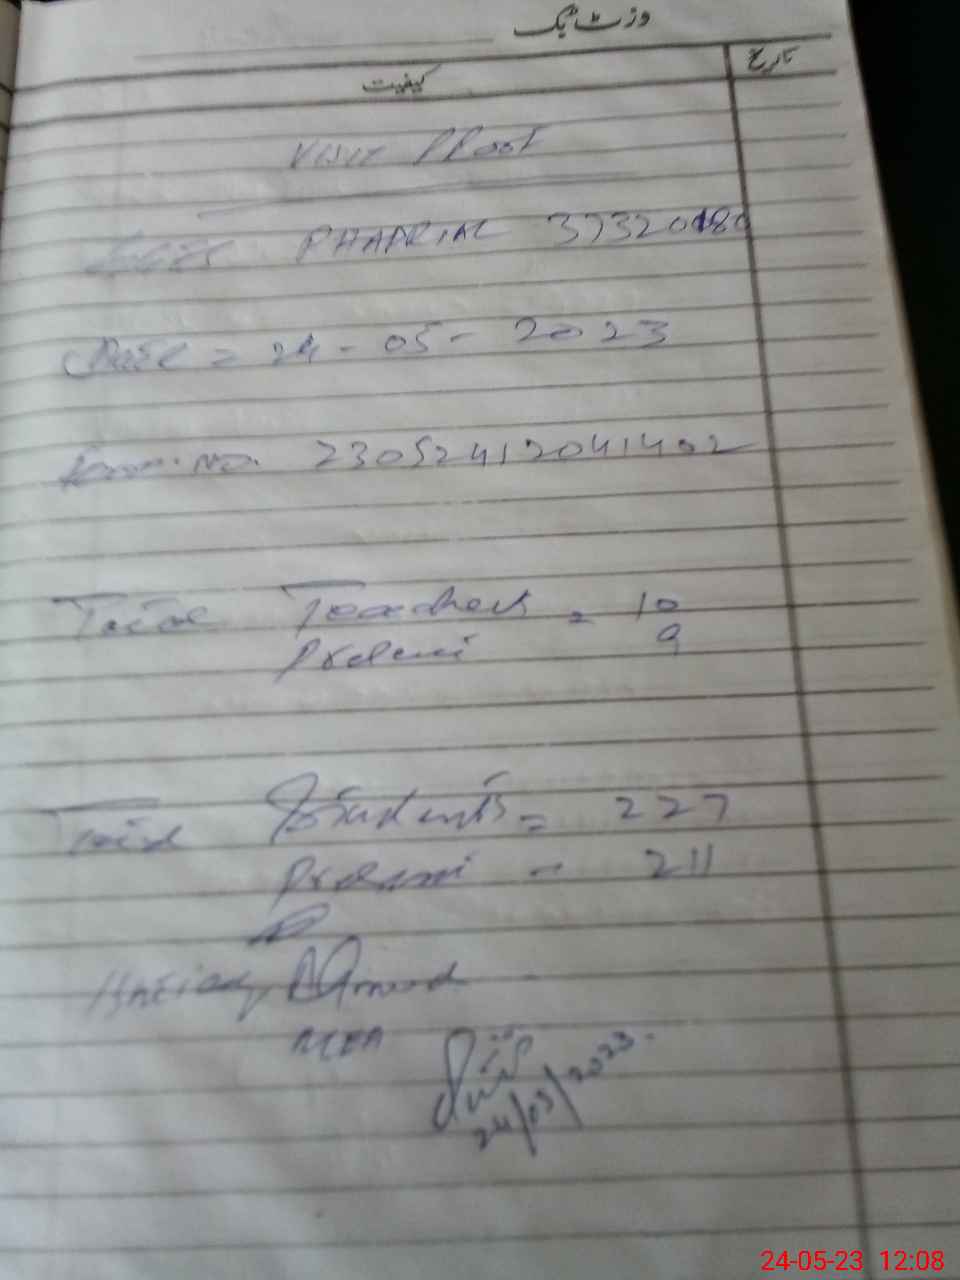 وزٹ بک
کیفیت تاریخ
Visit Proof
PHADRIAL 37320180
Date = 24-05-2023
Form. No. 23052412041402
Total Teachers = 10
Present 9
Total Students = 227
Present - 211
Ahmed
MEA
24/05/2023.
24-05-23 12:08